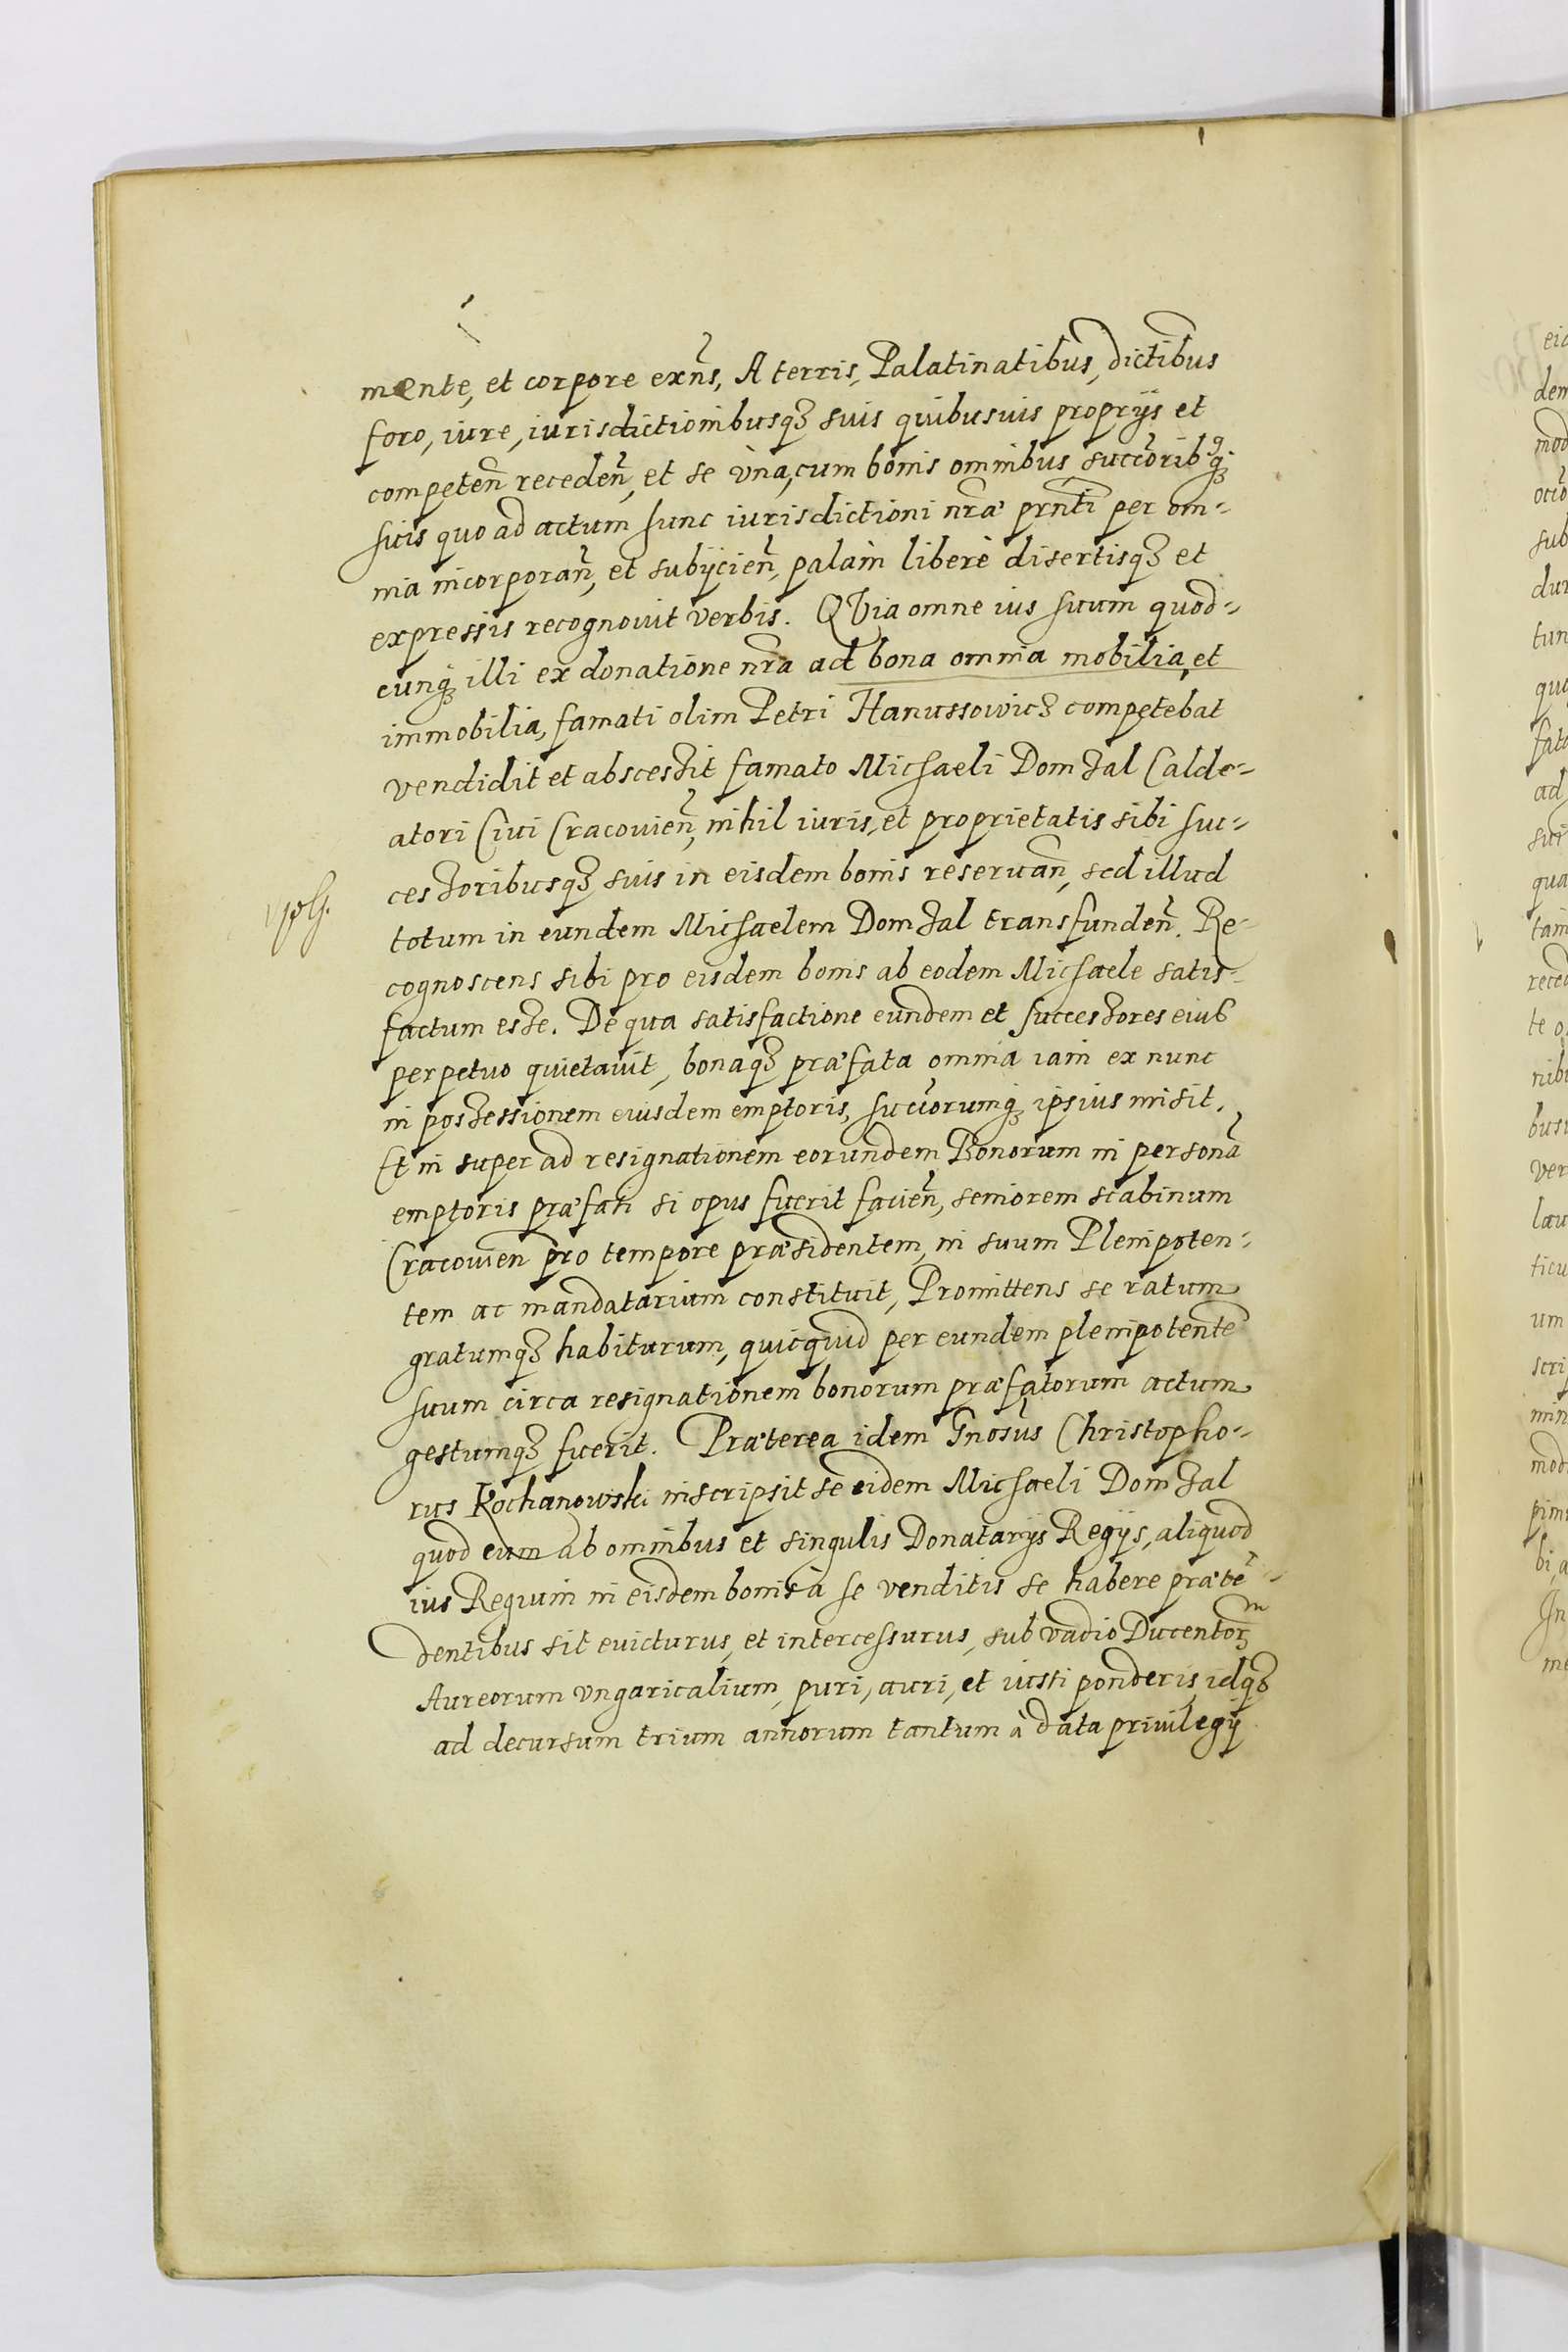 mente, et corpore exñs, A terris, Palatinatibus, dictibus
foro, iure, iurisdictionibusq3 suis quibusuis proprijs et
competeñ recedeñ, et se vna, cum bonis omnibus succorib9q3
suis quo ad actum hunc iurisdictioni nrãe prñti per om-
nia incorporañ, et subijcieñ, palam liberè disertisq3 et
expressis recognouit verbis. QVia omne ius suum quod-
cunq3 illi ex donatione nrã ad bona omnia mobilia, et
immobilia, famati olim Petri Hanussowicz competebat
vendidit et abscessit famato Michaeli Domzal Calde-
atori Ciui Cracouieñ, nihil iuris, et proprietatis sibi suc-
cessoribusq3 suis in eisdem bonis reseruañ, sed illud
totum in eundem Michaelem Domzal transfundeñ. Re-
cognoscens sibi pro eisdem bonis ab eodem Michaele satis-
factum esse. De qua satisfactione eundem et successores eius
perpetuo quietauit, bonaq3 præfata omnia iam ex nunc
in possessionem eiusdem emptoris, succorumq3 ipsius misit.
Et in super ad resignationem eorundem Bonorum in personã
emptoris præfati si opus fuerit facieñ, seniorem scabinum
Cracouien pro tempore præsidentem, in suum Plenipoten-
tem ac mandatarium constituit, Promittens se ratum
gratumq3 habiturum, quicquid per eundem plenipotentẽ
suum circa resignationem bonorum præfatorum actum
gestumq3 fuerit. Præterea idem Gnosus Christopho-
rus Kochanowski inscripsit se eidem Michaeli Domzal
quod eum ab omnibus et singulis Donatarijs Regijs, aliquod
ius Regium in eisdem bonis à se venditis se habere prætẽ-
dentibus sit euicturus, et intercessurus, sub vadio Ducentorm
Aureorum vngaricalium, puri, auri, et iusti ponderis, idq3
ad decursum trium annorum tantum à data priuilegij